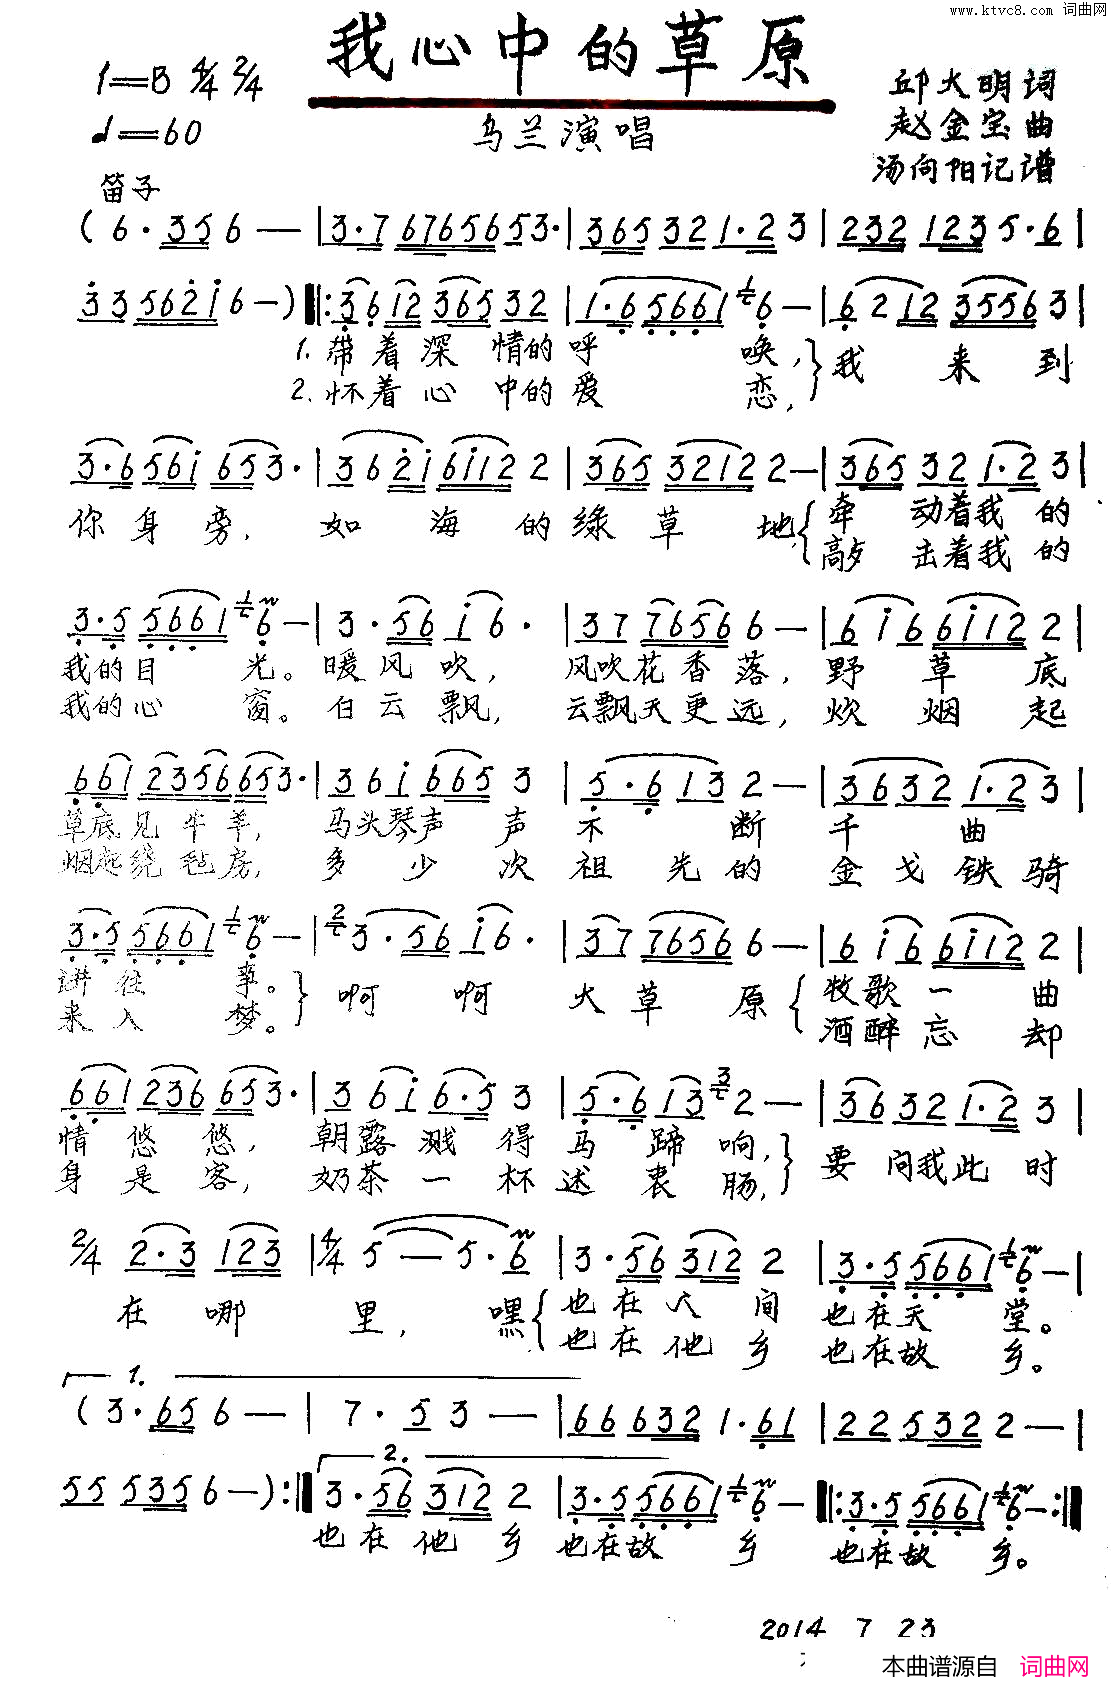 www.ktvc8.com 词曲网
我心中的草原
1=B 4/4 2/4
邱大明词
♩=60
乌兰演唱
赵金宝曲
汤向阳记谱
笛子
(6·356— | 3·7 6765653· | 365321·23 | 2321235·6 |
335621 6—) |: 36123653 2 | 1·65661 1/6— | 621235563 |
1.带着深情的呼唤,} 我来到
2.怀着心中的爱恋,}
3·6561653· | 36216112 2 | 36532122— | 365321·23 |
你身旁,如海的绿草地,{ 牵动着我的
敲击着我的
3·55661 1/6— | 3·5616· | 3776566— | 61661122 |
我的目光。暖风吹,风吹花香落,野草底
我的心窗。白云飘,云飘天更远,炊烟起
66123566 53· | 361665 3 | 5·6132— | 36321·23 |
草底见牛羊,马头琴声声不断千曲
烟起绕毡房,多少次祖先的金戈铁骑
3·55661 1/6— | 2/3·5616· | 37765656— | 61661122 |
讲往事。} 啊啊大草原{ 牧歌一曲
来入梦。} 酒醉忘却
6612366 53· | 3616·53 | 5·613 3/2— | 36321·23 |
情悠悠,朝露溅得马蹄响,} 要问我此时
身是客,奶茶一杯述衷肠,}
2/4 2·3123 | 4/4 5—5·6 | 3·563122 | 3·55661 1/6— |
在哪里,嘿{ 也在人间也在天堂。
也在他乡也在故乡。
1.
(3·656— | 7·53— | 666321·61 | 225322— |
2.
555356—) :| 3·563122 | 3·55661 1/6— |: 3·55661 1/6— :|
也在他乡也在故乡也在故乡。
2014 7 23
本曲谱源自 词曲网